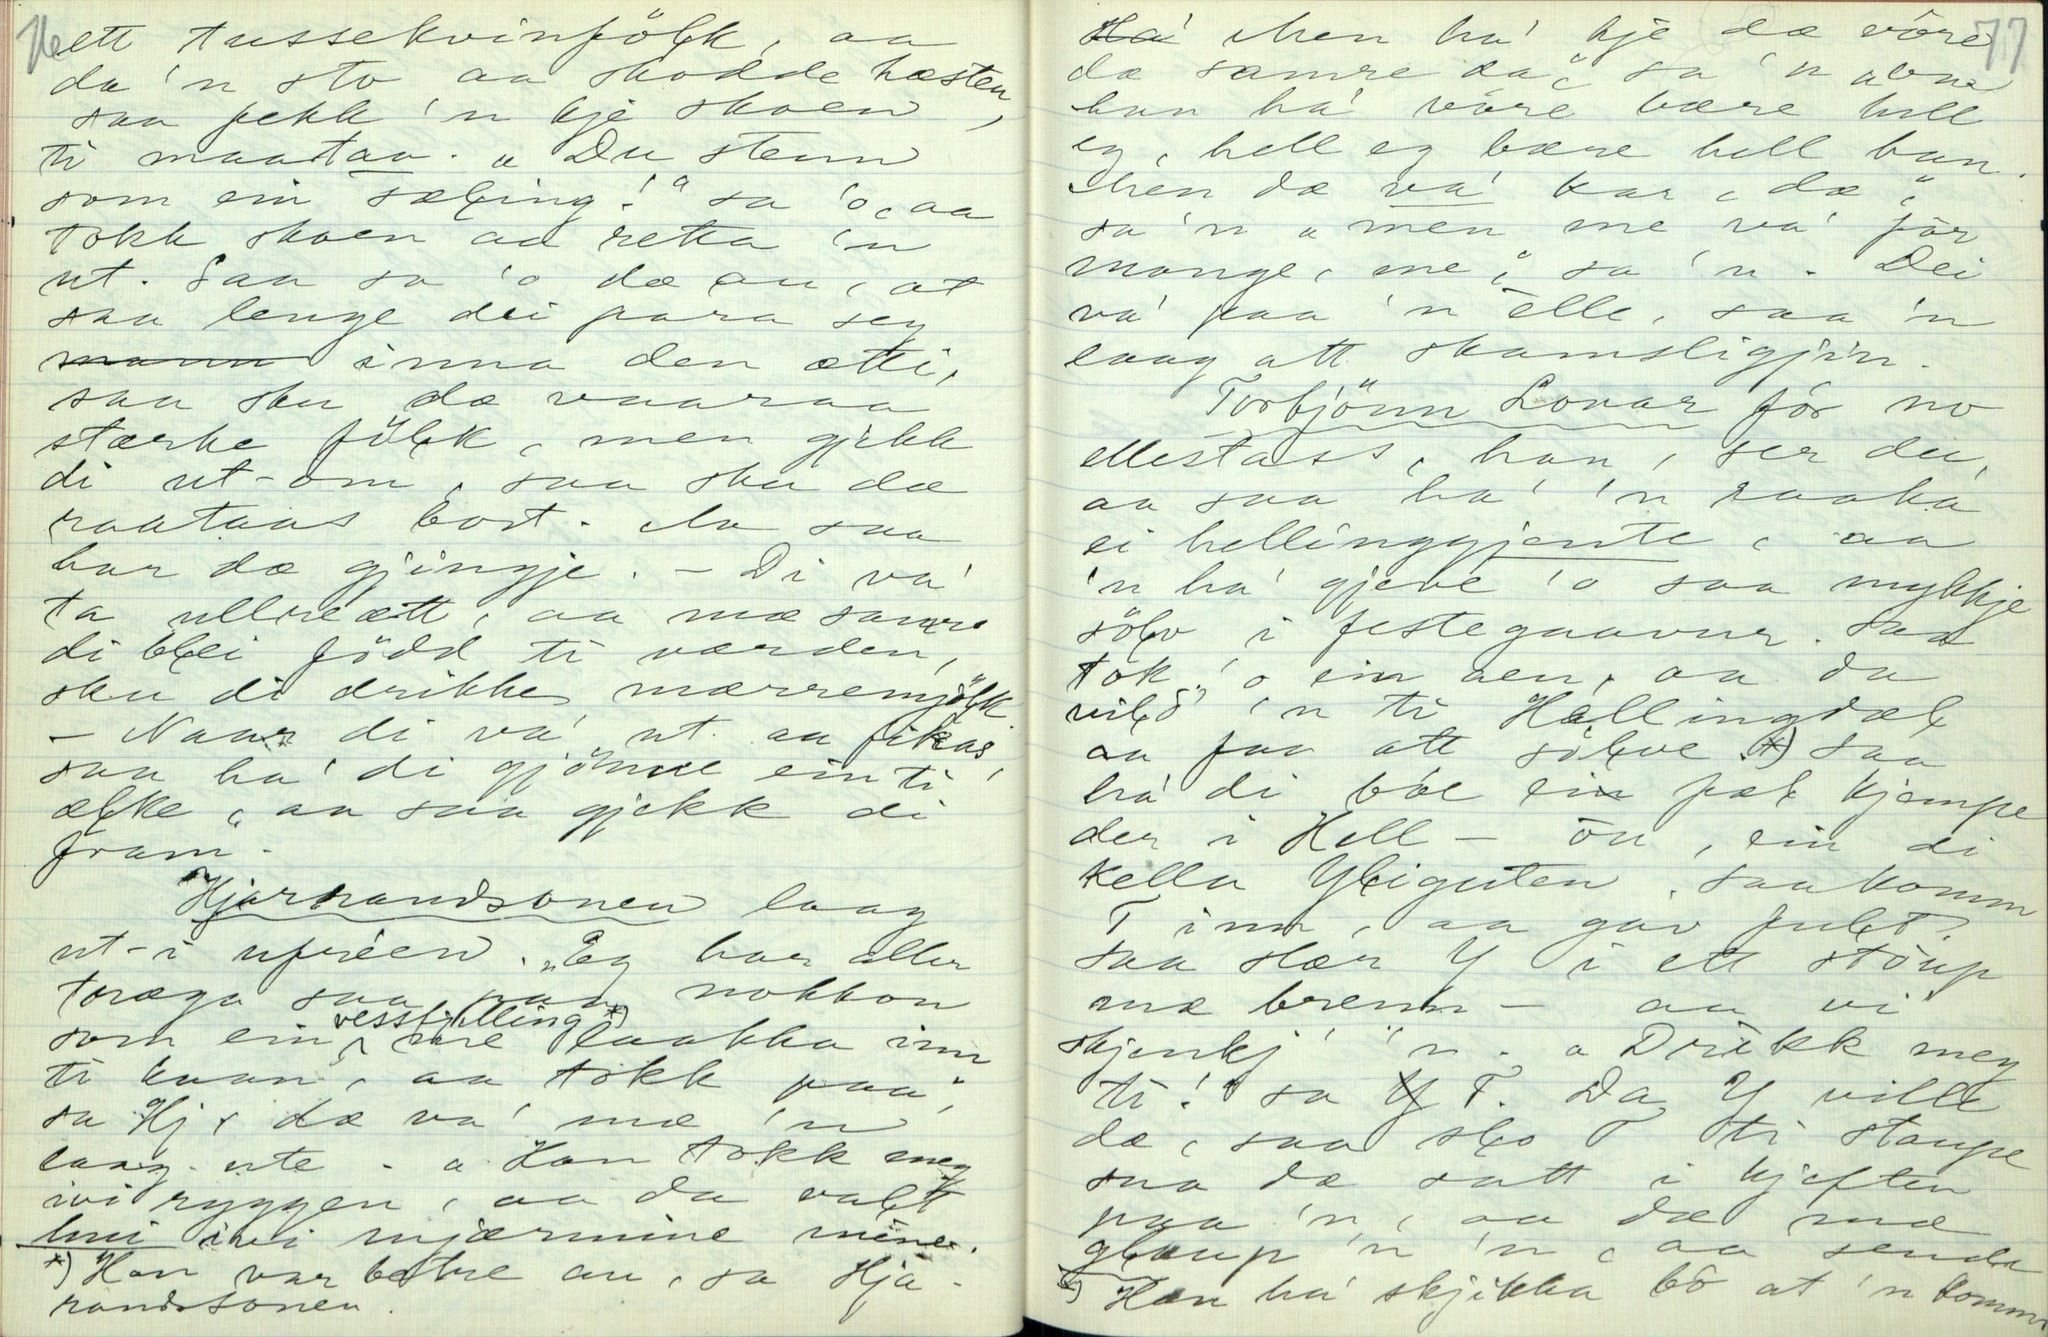 76
ett tussekvinfölk, aa
da 'n sto aa skodde hæsten,
saa fekk 'n kje skoen,
ti maataa. „Du stenn
som ein sæling!" sa 'o, aa
tokk skoen aa retta 'n
ut. Saa sa 'o dæ au, at
saa lenge dei para seg
mann inna den ætti,
saa sku dæ vaaraa
stærke fölk, men gjekk
di ut-om, saa sku dæ
raataas bort. No saa
har dæ gjingje. — Di va'
ta ullreætt, aa mæ samre
di blei född ti værden,
sku di drikke mærremjölk.
— Naar di va' ut aa fikas,
saa ha' di gjönne ein ti
ælke, aa saa gjekk di
fram.
Hjarrandsonen laag
ut-i ufréen. „Eg har aller
toræga saa paa nokkon
som ein vesstjilling *) me laakka inn
ti kaan, aa tokk paa",
sa Hj, dæ va' mæ 'n
laag ute. „Han tokk meg
ivi ryggen, aa da valt
hui ivi mjærmine mine.
*) Han var betre au, sa Hja-
randsonen.
77
Ha' Men ha' kje dæ vöre
dæ samre da", sa 'n,
han ha' vöre bære hell
eg, hell eg bære hell han.
Men dæ va' kar, dæ",
sa 'n „men me va' får
mange, me", sa 'n. Dei
va' paa 'n elle, saa 'n
laag att skamsligjin.
Torbjönn Lonar fór no
ellestass, han, ser du,
aa saa ha' 'n raaka
ei hellinggjente, aa
'n ha' gjeve 'o saa mykkje
sölv i festegaavur. Saa
tok 'o ein aen, aa da
vild' 'n ti Hallingdæl
aa faa att sölve *) Saa
ha' di bôe ein fæl kjempe
der i Hell — ön, ein di
kella Ygliguten. Saa komm
T inn, aa gav fulgt.
Saa slær Y i ett stöup
mæ brenn — aa vi'
skjenkj' 'n. „Drikk meg
ti!" sa Y T. Da Y ville
dæ, saa slo T ti staupe
saa dæ satt i kjeften
paa 'n, aa dæ mæ
glaup 'n 'n, aa senda
*) Han ha' skjikka bô at 'n komm